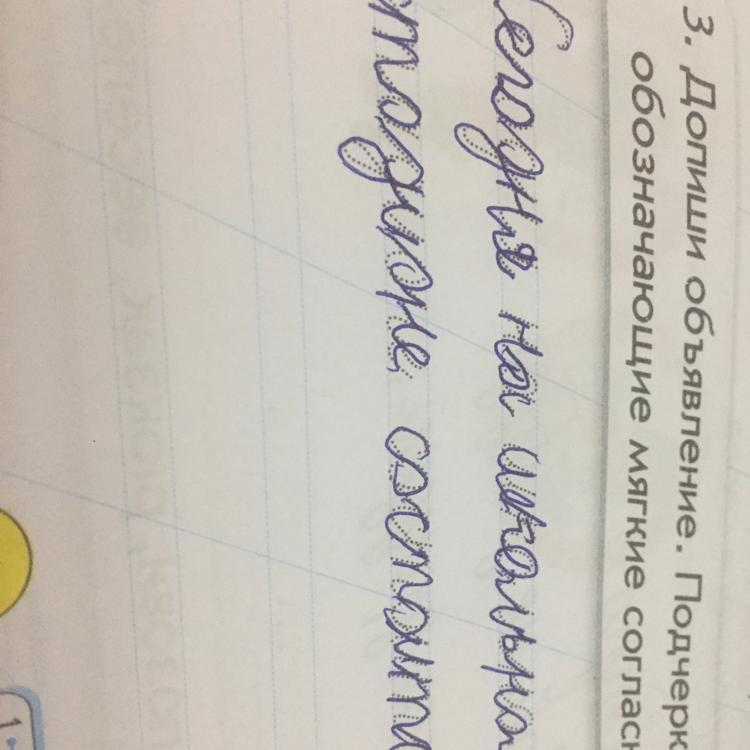 3. Допиши объявление. Подчерк
обозначающие мягкие соглас
Сегодня на школьно
стадионе состоит